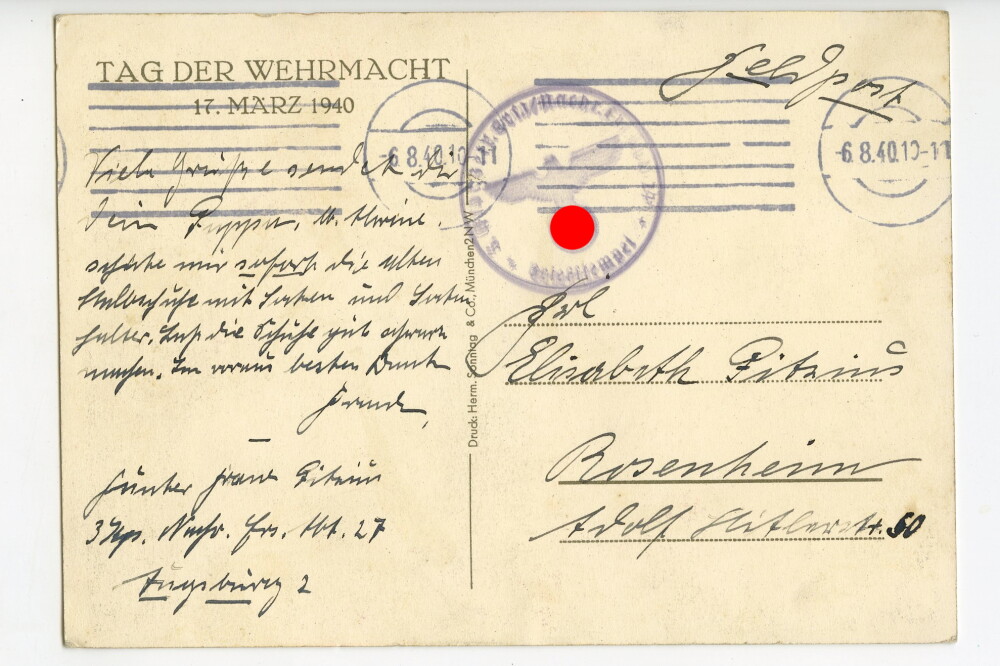 TAG DER WEHRMACHT
17. MÄRZ 1940
Feldpost
6.8.40.10-11
6.8.40.10-11
Viele Grüße sendet dir
dein
schicke mir sofort die alten
Halbschuhe mit Socken und Socken
halter. Laß die Schuhe gut schwarz
machen. Im voraus besten Dank
Franz
Günter Franz Fitzius
3 Kp. Nachr. Ers. Abt. 27
Augsburg 2
Druck: Herm. Sonntag & Co., München 2 NW
Briefstempel
Frl
Elisabeth Fitzius
Rosenheim
Adolf Hitlerstr. 60